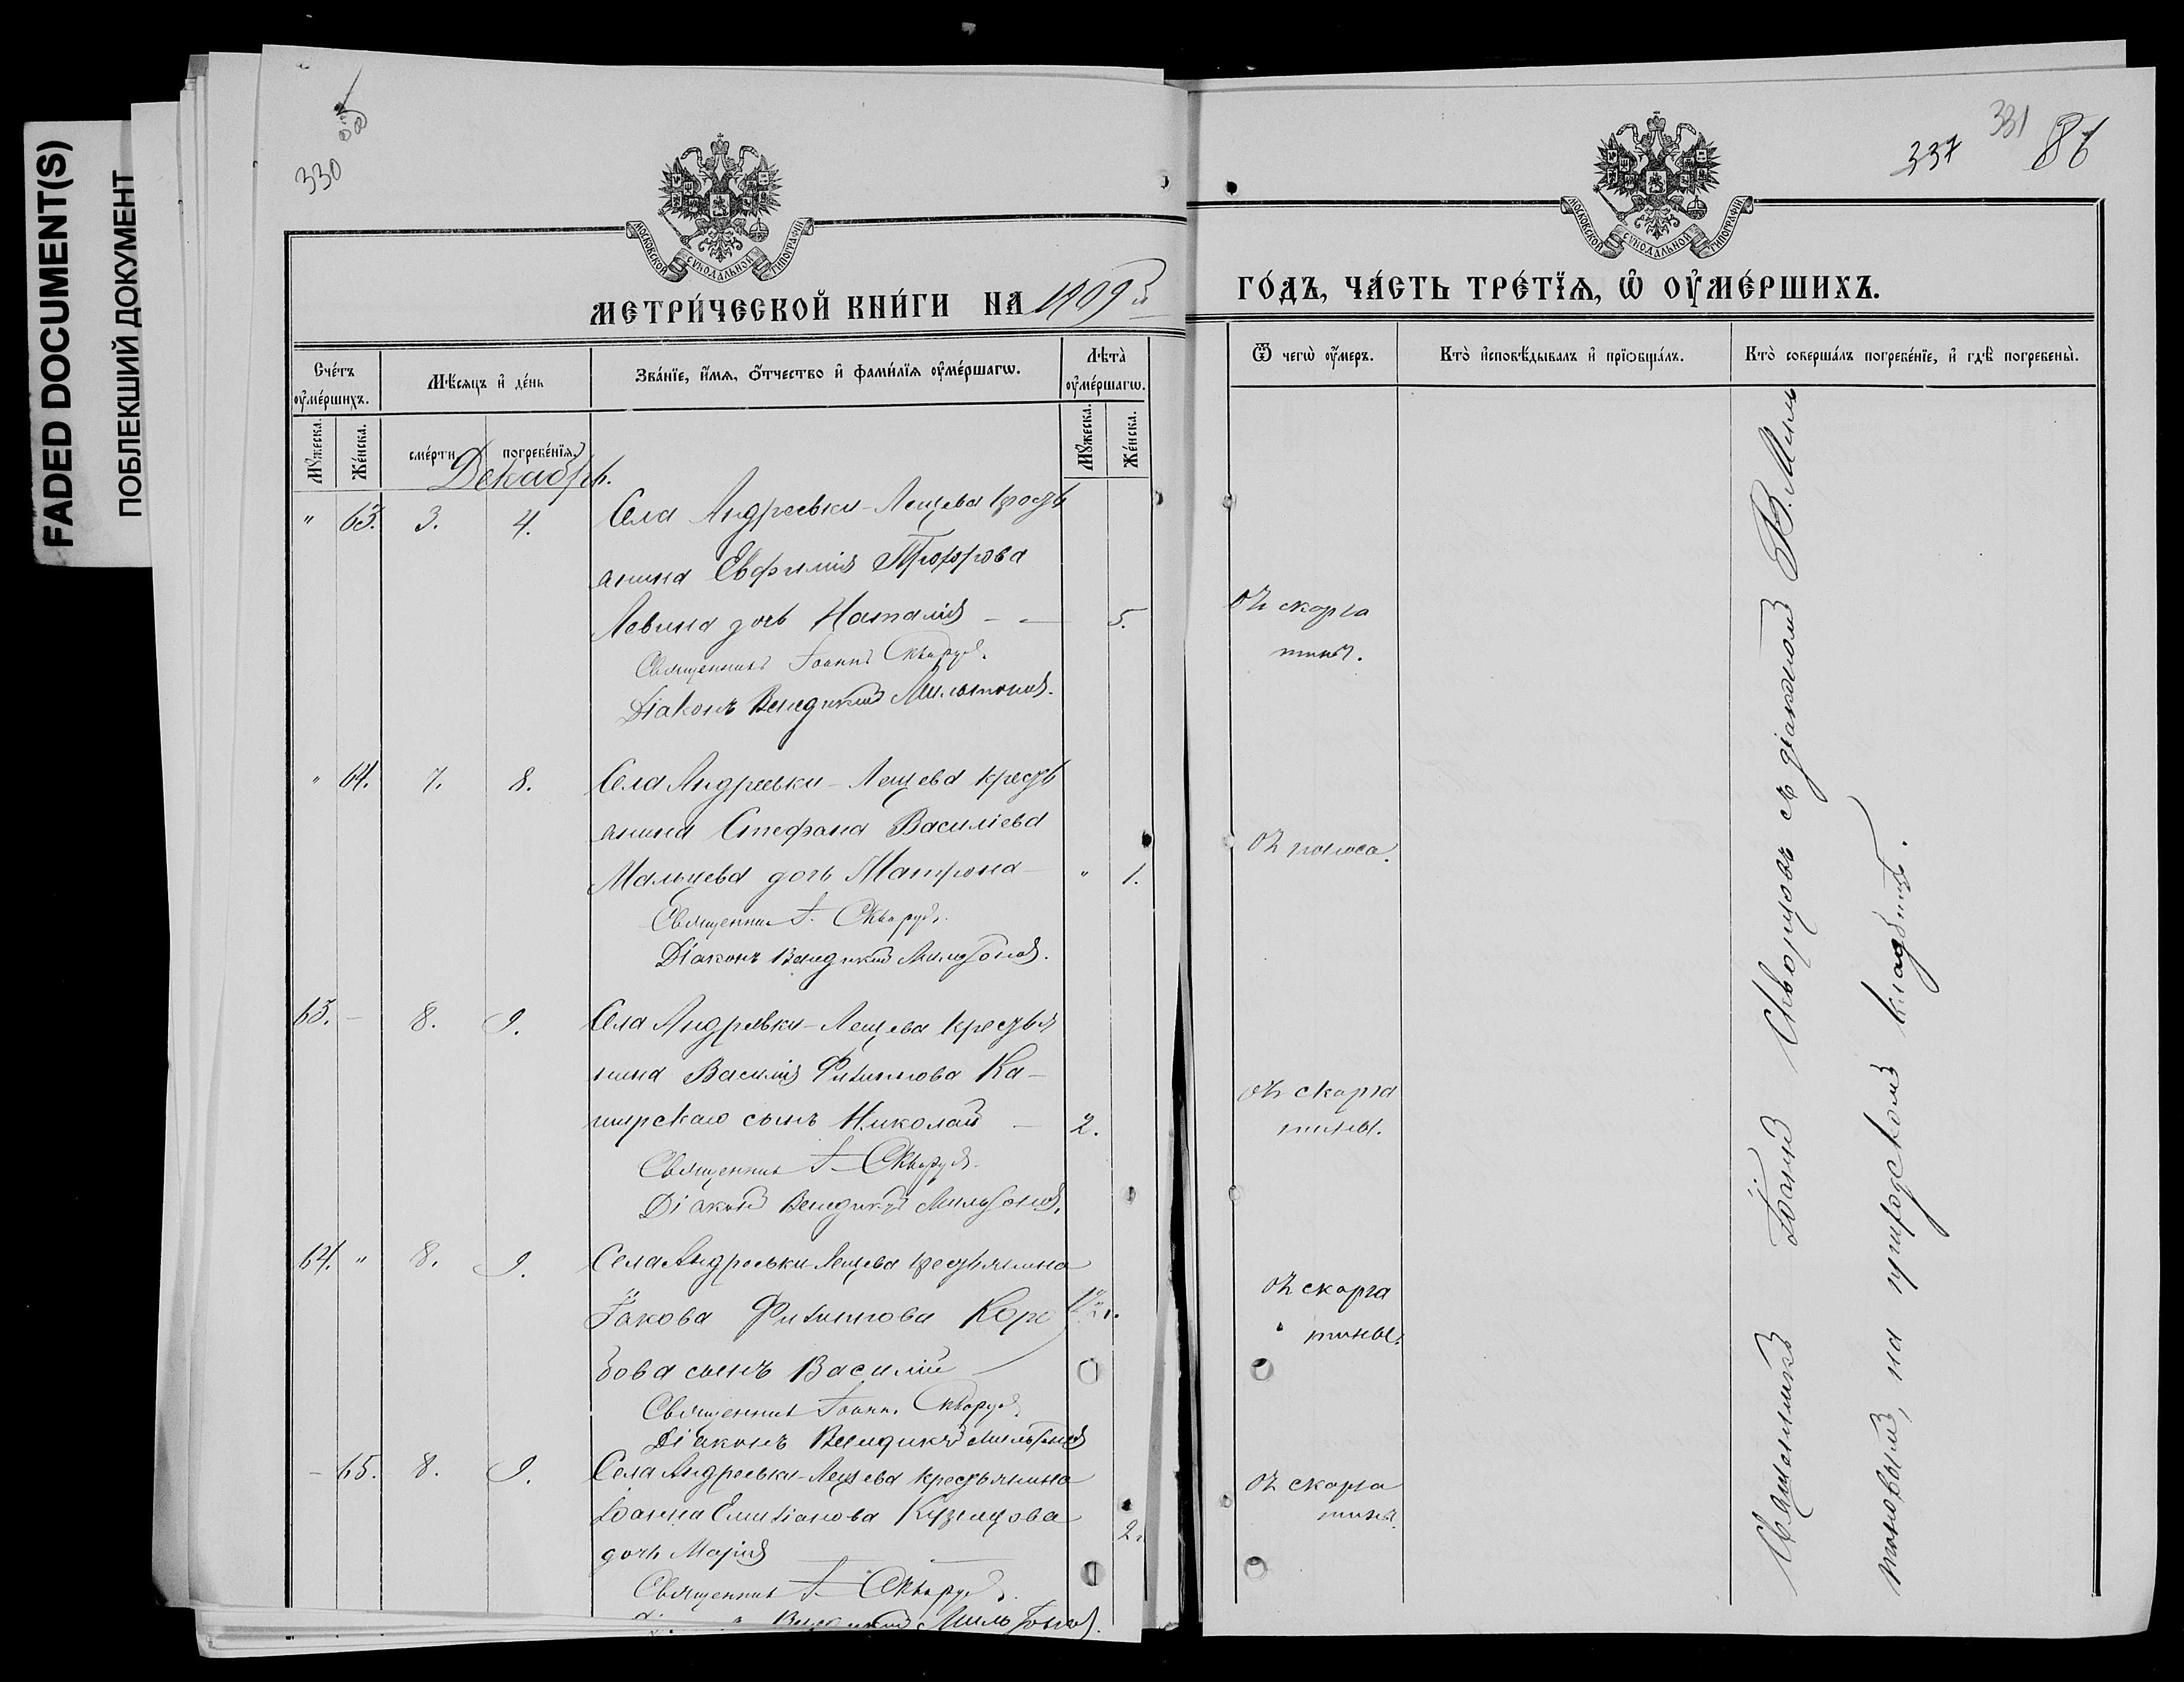 FADED DOCUMENT(S)
ПОБЛЕКШИЙ ДОКУМЕНТ
330
МОСКОВСКОЙ СѴНОДАЛЬНОЙ ТИПОГРАФІИ
МЕТРИ́ЧЕСКОЙ КНИ́ГИ НА 1909 й
Сче́тъ оу҆ме́ршихъ.
Мѣ́сяцъ и҆ де́нь
Зва́нїе, и҆́мѧ, ѻ҆́тчество и҆ фами́лїѧ оу҆ме́ршагѡ.
Лѣта̀ оу҆ме́ршагѡ.
Мꙋ́жеска.
Же́нска.
сме́рти
погребе́нїѧ
Мꙋ́жеска.
Же́нска.
Декабрь.
" 63. 3. 4. Села Андреевки-Лещева кресть
анина Евфимія Прохорова
Левина дочь Наталія - - 5.
Священникъ Іоаннъ Скворцовъ.
Діаконъ Венедиктъ Мильтоновъ.
" 64. 7. 8. Села Андреевки-Лещева кресть
анина Стефана Василіева
Мальцева дочь Матрона " 1.
Священникъ І. Скворцовъ.
Діаконъ Венедиктъ Мильтоновъ.
63. - 8. 9. Села Андреевки-Лещева крестья
нина Василія Филиппова Ка-
ширскаго сынъ Николай - 2.
Священникъ І. Скворцовъ.
Діаконъ Венедиктъ Мильтоновъ.
64. " 8. 9. Села Андреевки Лещева крестьянина
Іакова Филиппова Коро
бова сынъ Василій
Священникъ Іоаннъ Скворцовъ
Діаконъ Венедиктъ Мильтоновъ
- 65. 8. 9. Села Андреевки-Лещева крестьянина
Іоанна Емиліанова Кузнецова 2.
дочь Марія
Священникъ І. Скворцовъ.
Венедиктъ Мильтоновъ.
337 331 86
МОСКОВСКОЙ СѴНОДАЛЬНОЙ ТИПОГРАФІИ
ГО́ДЪ, ЧА́СТЬ ТРЕ́ТЇѦ, Ѡ҆ ОУ҆МЕ́РШИХЪ.
Ѿ чегѡ̀ оу҆́меръ.
Кто̀ и҆сповѣ́дывалъ и҆ прїѡбща́лъ.
Кто̀ соверша́лъ погребе́нїе, и҆ гдѣ̀ погребены̀.
отъ скарла
тины.
отъ поноса.
отъ скарла
тины.
отъ скарла
тины.
отъ скарла
тины.
Священникъ Іоаннъ Скворцовъ съ діакономъ В. Миль
тоновымъ, на приходскомъ кладбищѣ.